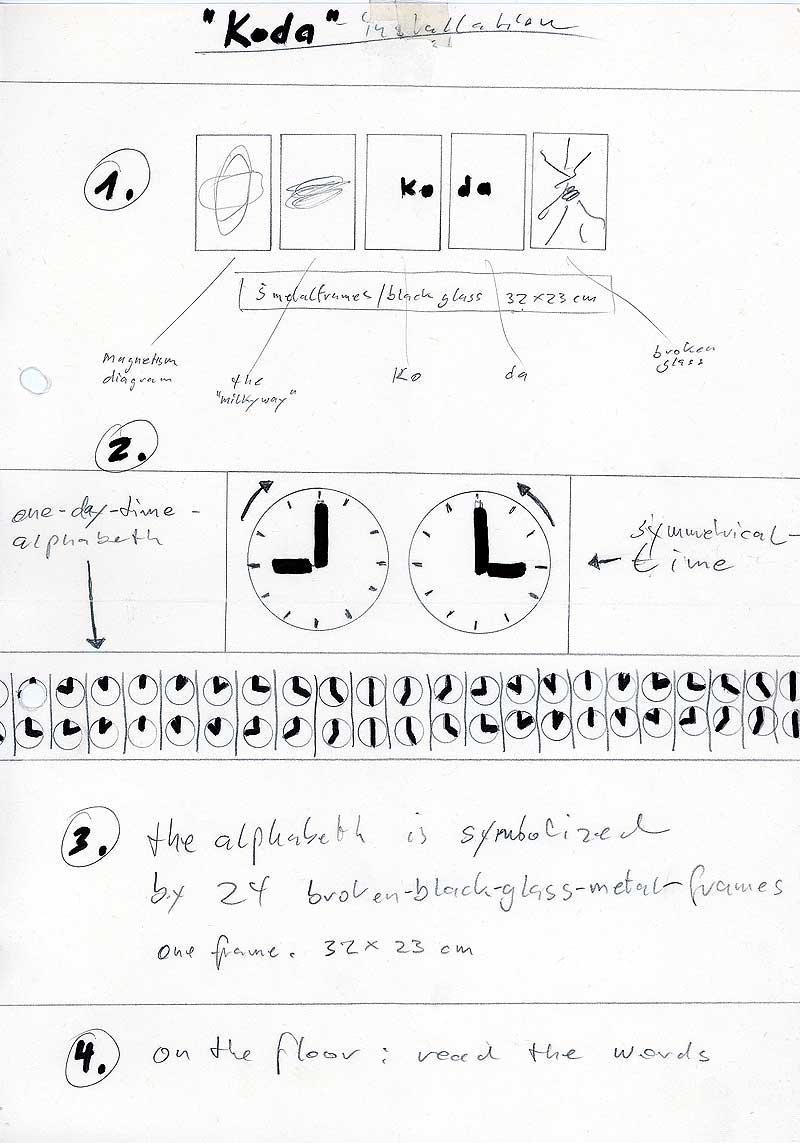 "Koda" - installation
1.
Ko da
5 metalframes / black glass 32 x 23 cm
magnetism
diagram
the
"milkyway"
Ko
da
broken
glass
2.
one-day-time-
alphabeth
symmetrical-
time
3. the alphabeth is symbolized
by 24 broken-black-glass-metal-frames
one frame. 32 x 23 cm
4. on the floor : read the words